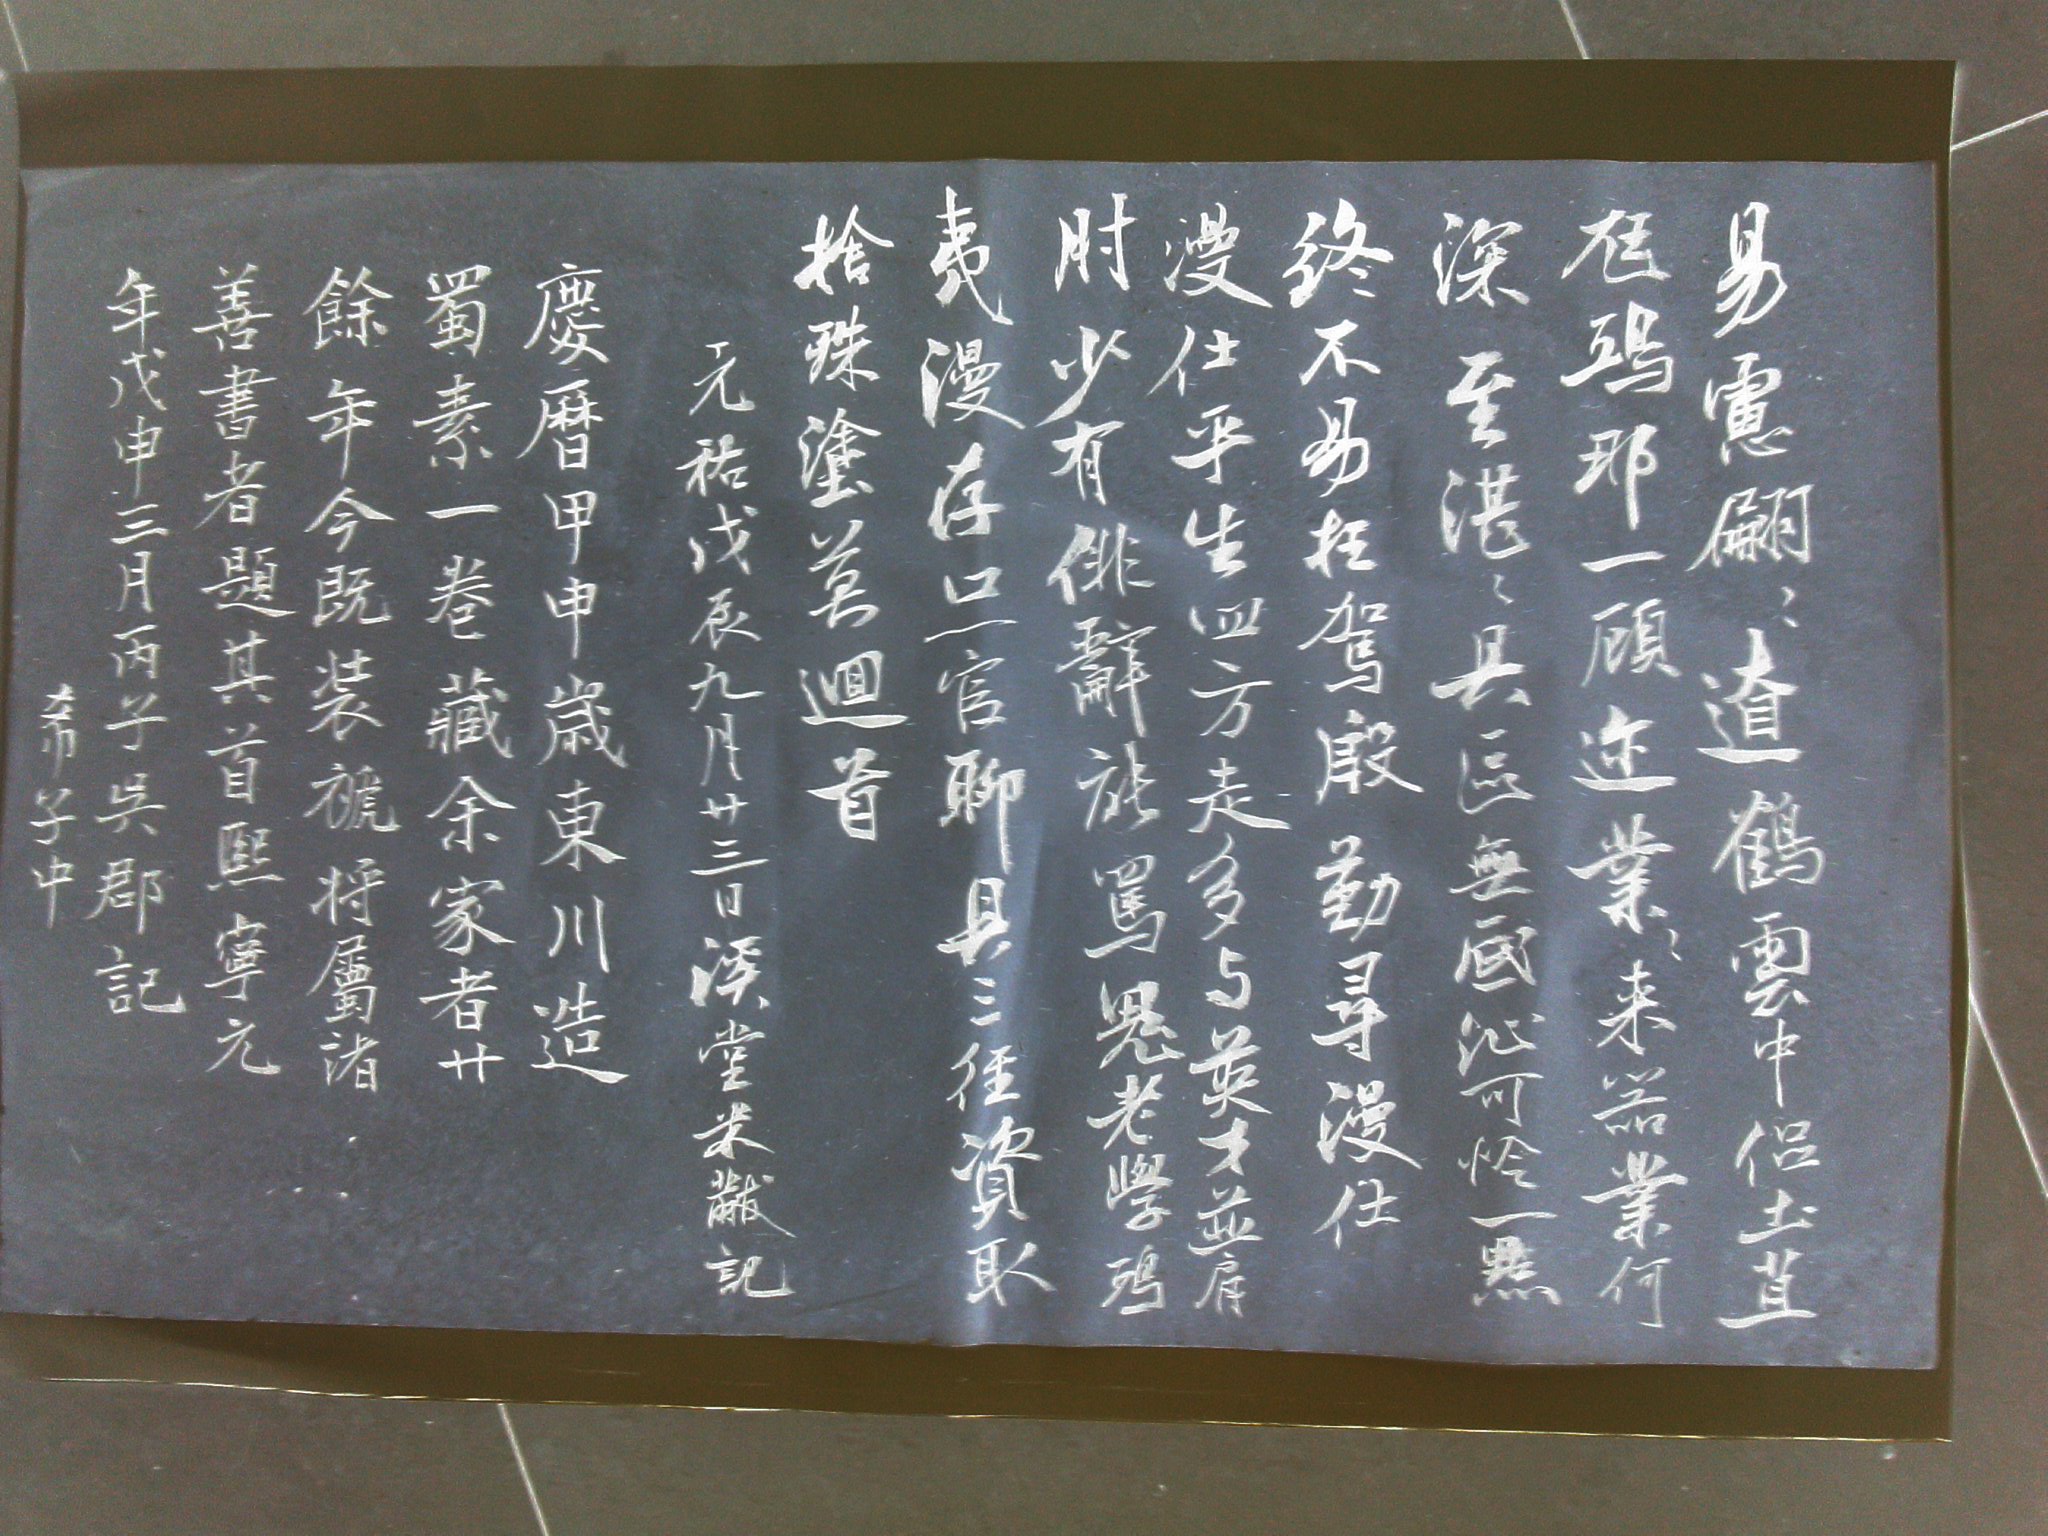 易慮翩〻遼鶴雲中侶土苴
尪鴟那一顧迩業〻来器業何
深至湛〻具區無底沚可怜一點
終不易枉駕殷勤尋漫仕
漫仕平生四方走多与英才並肩
肘少有俳辭能罵鬼老學鴟
夷漫存口一官聊具三徑資取
捨殊塗莫迴首
元祐戊辰九月廿三日溪堂米黻記
慶曆甲申歲東川造
蜀素一卷藏余家者廿
餘年今既裝褫將屬諸
善書者題其首熙寧元
年戊申三月丙子吳郡記
希子中